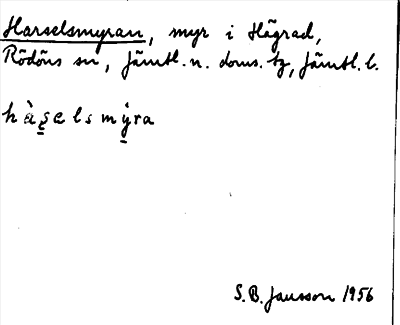 Harselsmyran, myr i Hägrad,
Rödöns sn, Jämtl. n. doms. tg, Jämtl. l.
hàʂelsmýra
S.B. Jansson 1956